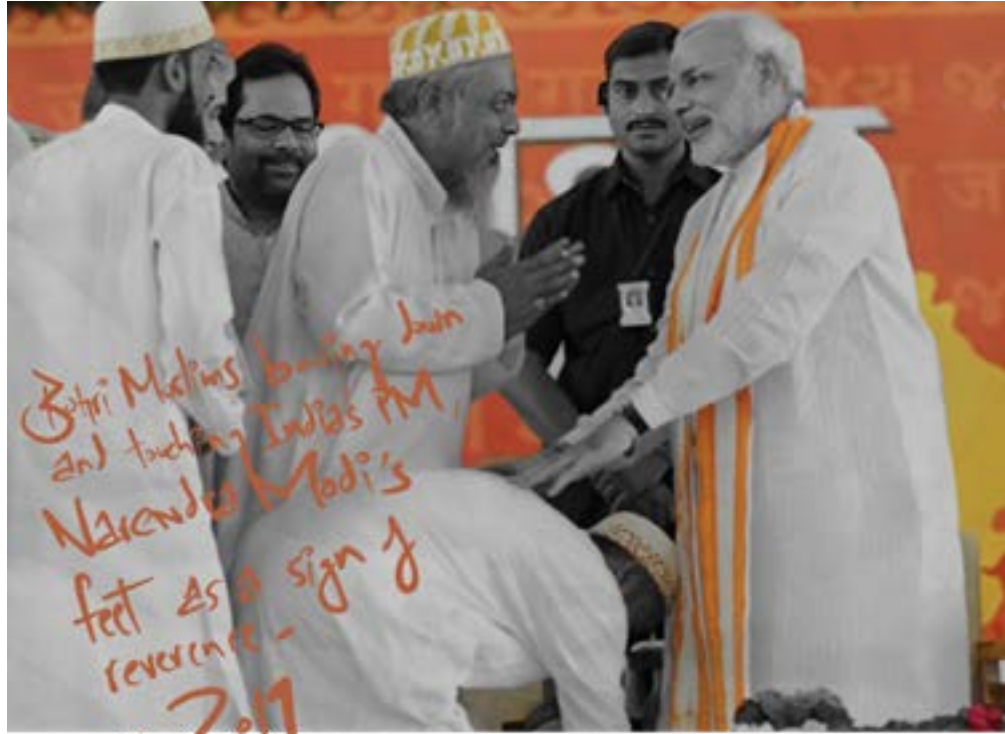 Bohri Muslims bowing down
and touching India's PM,
Narendra Modi's
feet as a sign of
reverence -
2017